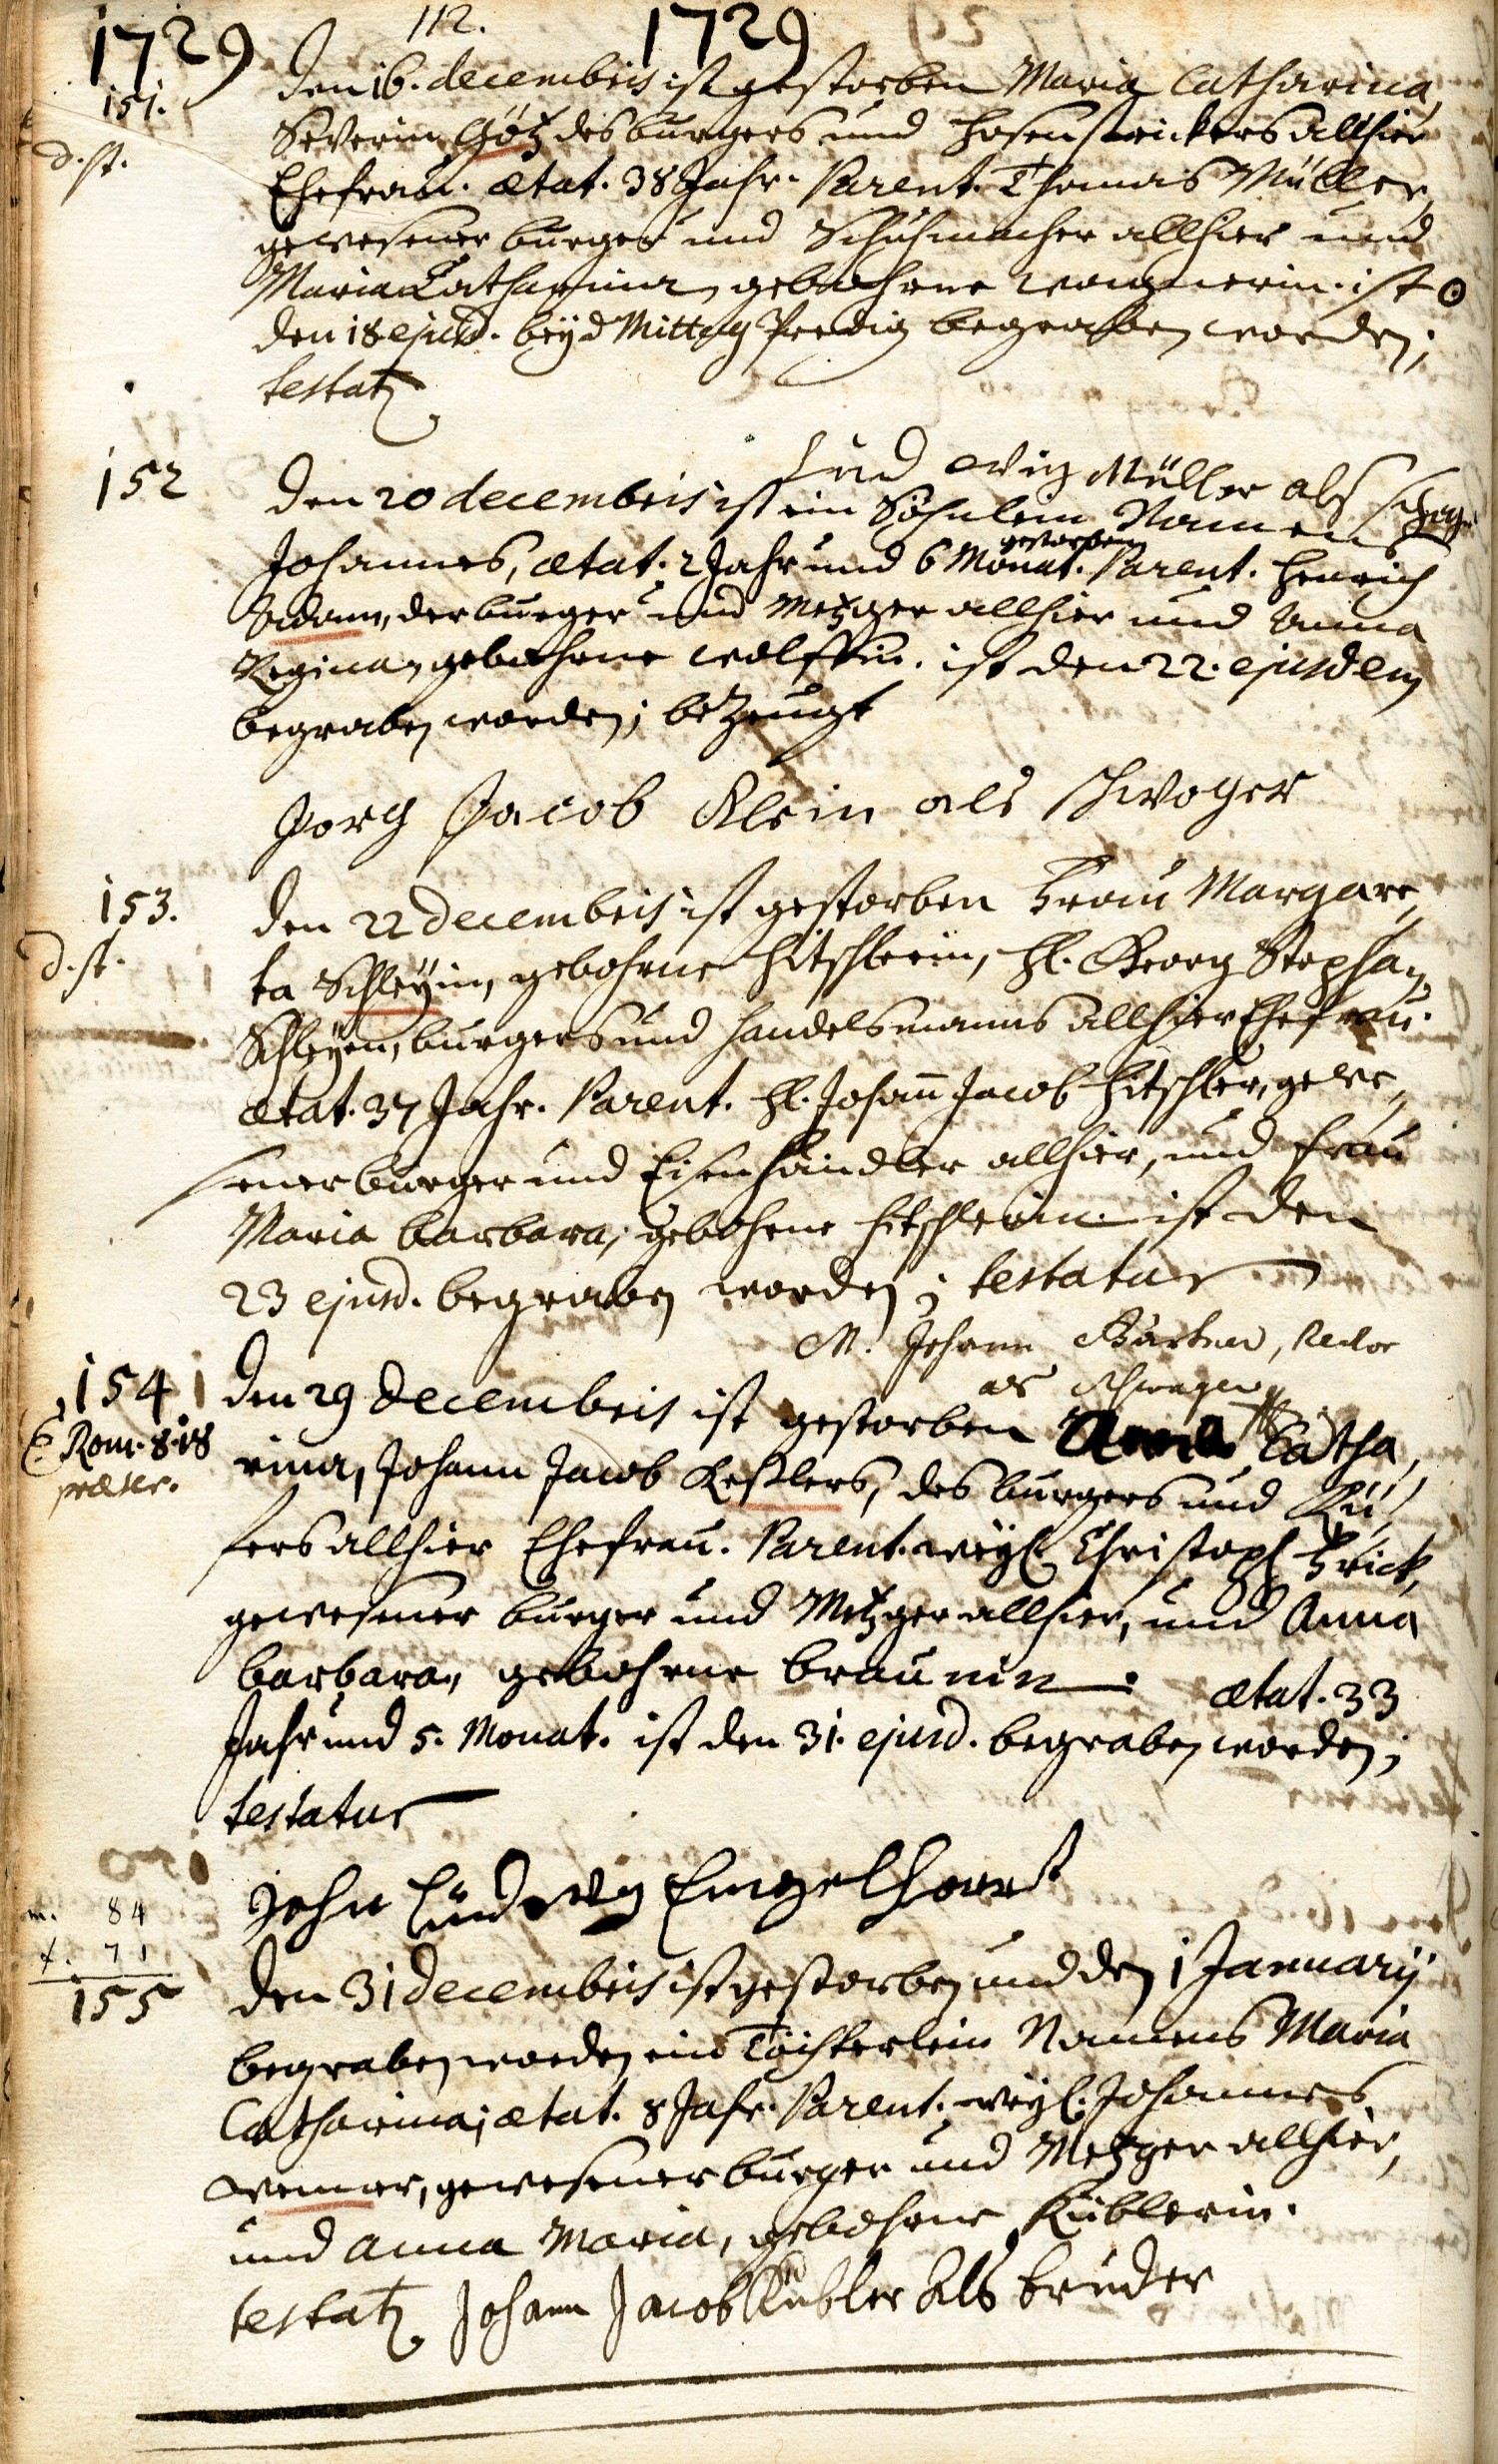 1729 112. 1729
151. den 16. decembris ist gestorben Maria Catharina,
d. st. Severin Götz des burgers und hosenstrickers allhier
Ehefrau. ætat. 38 Jahr. Parent. Thomas Müller,
gewesener burger und Schuhmacher allhier und
Maria Catharina, gebohrne wagnerin. ist ⊙
den 18 ejusd. beÿ d Mittag Predig begraben worden;
testat
Lud wig Müller als
152 den 20 decembris ist ein Söhnlein Namens
gestorben
Johannes, ætat. 2 Jahr und 6 Monat. Parent. Henrich
Adam, der burger und Metzger allhier und Anna
Regina, gebohrne wolffin. ist den 22. ejusdem
begraben worden; bezeugt
Jorg Jacob Klein als schwoger
153. den 22 decembris ist gestorben Frau Margare„
d. st. ta Schleÿin, gebohrne Hitschlerin, H. Georg Stephan
Schleÿen, burgers und handelsmanns allhier Ehefrau.
ætat. 37 Jahr. Parent. H. Johann Jacob Hitschler, gewe„
sener burger und Eisenhändler allhier, und Frau
Maria barbara, gebohrne Hitschlerin. ist den
23 ejusd. begraben worden; testatur
M. Johann, Rector
als Schwager
154 den 29 decembris ist gestorben Catha„
E. Rom. 8. 18 rina, Johann Jacob Keßlers, des burgers und Kü„
præter. fers allhier Ehefrau. Parent. weÿl. Christoph Frick,
gewesener burger und Metzger allhier, und Anna
barbara, gebohrne braunin. ætat. 33
Jahr und 5. Monat. ist den 31. ejusd. begraben worden;
testatur
John Ludwig Engelhardt
m. 84
f. 71
155 den 31 decembris ist gestorben und den 1 Januarÿ
begraben worden ein Töchterlein Namens Maria
Catharina; ætat. 8 Jahr. Parent. weÿl. Johannes
wenner, gewesener burger und Metzger allhier,
und Anna Maria, gebohrne Küblerin.
testat Johann Jacob Kübler Als bruder